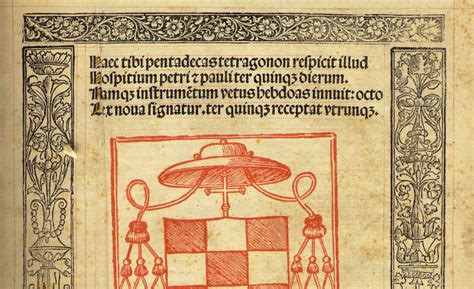 Haec tibi pentadecas tetragonon respicit illud
Hospitium petri ⁊ pauli ter quinqꝫ dierum.
Namqꝫ instrumẽtum vetus hebdoas innuit: octo
Lex noua signatur. ter quinqꝫ receptat vtrunqꝫ.